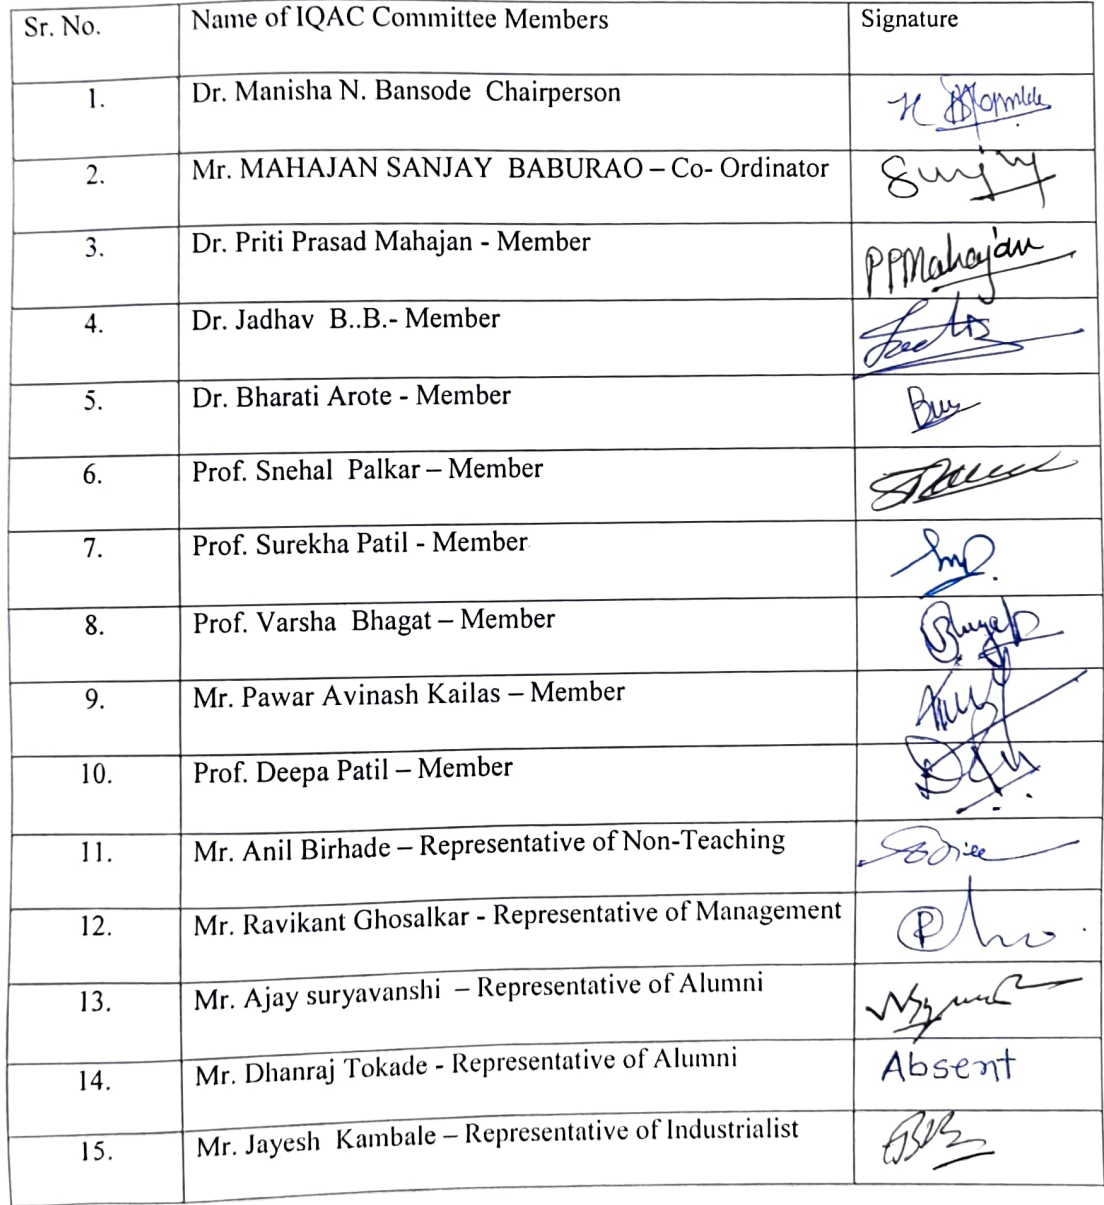 Sr. No. Name of IQAC Committee Members Signature
1. Dr. Manisha N. Bansode Chairperson
2. Mr. MAHAJAN SANJAY BABURAO – Co- Ordinator
3. Dr. Priti Prasad Mahajan - Member PPMahajan
4. Dr. Jadhav B..B.- Member
5. Dr. Bharati Arote - Member
6. Prof. Snehal Palkar – Member
7. Prof. Surekha Patil - Member
8. Prof. Varsha Bhagat – Member
9. Mr. Pawar Avinash Kailas – Member
10. Prof. Deepa Patil – Member
11. Mr. Anil Birhade – Representative of Non-Teaching
12. Mr. Ravikant Ghosalkar - Representative of Management
13. Mr. Ajay suryavanshi – Representative of Alumni
14. Mr. Dhanraj Tokade - Representative of Alumni Absent
15. Mr. Jayesh Kambale – Representative of Industrialist